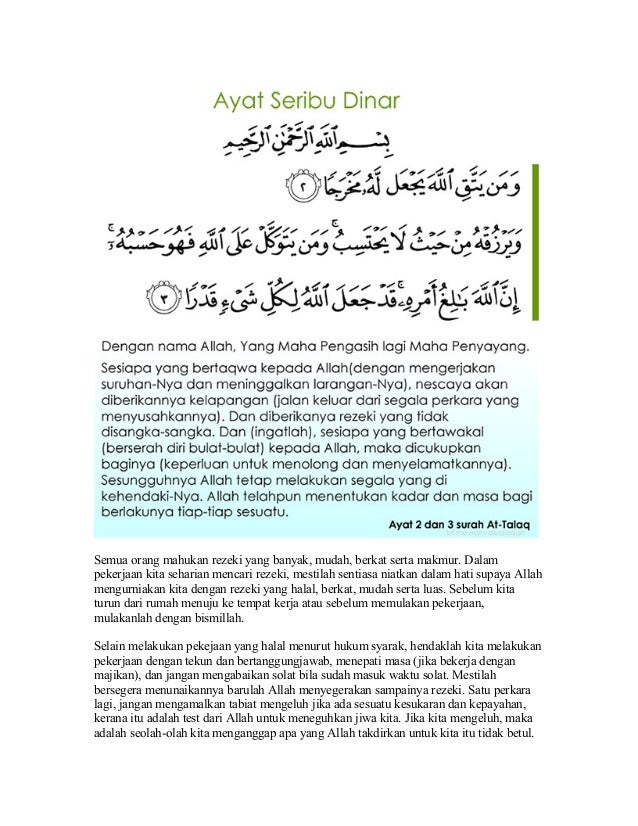 Ayat Seribu Dinar
بِسْمِ ٱللَّهِ ٱلرَّحْمَٰنِ ٱلرَّحِيمِ
وَمَن يَتَّقِ ٱللَّهَ يَجْعَل لَّهُۥ مَخْرَجًا ﴿٢﴾
وَيَرْزُقْهُ مِنْ حَيْثُ لَا يَحْتَسِبُ ۚ وَمَن يَتَوَكَّلْ عَلَى ٱللَّهِ فَهُوَ حَسْبُهُۥٓ ۚ
إِنَّ ٱللَّهَ بَٰلِغُ أَمْرِهِۦ ۚ قَدْ جَعَلَ ٱللَّهُ لِكُلِّ شَىْءٍ قَدْرًا ﴿٣﴾
Dengan nama Allah, Yang Maha Pengasih lagi Maha Penyayang.
Sesiapa yang bertaqwa kepada Allah(dengan mengerjakan
suruhan-Nya dan meninggalkan larangan-Nya), nescaya akan
diberikannya kelapangan (jalan keluar dari segala perkara yang
menyusahkannya). Dan diberikanya rezeki yang tidak
disangka-sangka. Dan (ingatlah), sesiapa yang bertawakal
(berserah diri bulat-bulat) kepada Allah, maka dicukupkan
baginya (keperluan untuk menolong dan menyelamatkannya).
Sesungguhnya Allah tetap melakukan segala yang di
kehendaki-Nya. Allah telahpun menentukan kadar dan masa bagi
berlakunya tiap-tiap sesuatu.
Ayat 2 dan 3 surah At-Talaq
Semua orang mahukan rezeki yang banyak, mudah, berkat serta makmur. Dalam
pekerjaan kita seharian mencari rezeki, mestilah sentiasa niatkan dalam hati supaya Allah
mengurniakan kita dengan rezeki yang halal, berkat, mudah serta luas. Sebelum kita
turun dari rumah menuju ke tempat kerja atau sebelum memulakan pekerjaan,
mulakanlah dengan bismillah.
Selain melakukan pekejaan yang halal menurut hukum syarak, hendaklah kita melakukan
pekerjaan dengan tekun dan bertanggungjawab, menepati masa (jika bekerja dengan
majikan), dan jangan mengabaikan solat bila sudah masuk waktu solat. Mestilah
bersegera menunaikannya barulah Allah menyegerakan sampainya rezeki. Satu perkara
lagi, jangan mengamalkan tabiat mengeluh jika ada sesuatu kesukaran dan kepayahan,
kerana itu adalah test dari Allah untuk meneguhkan jiwa kita. Jika kita mengeluh, maka
adalah seolah-olah kita menganggap apa yang Allah takdirkan untuk kita itu tidak betul.